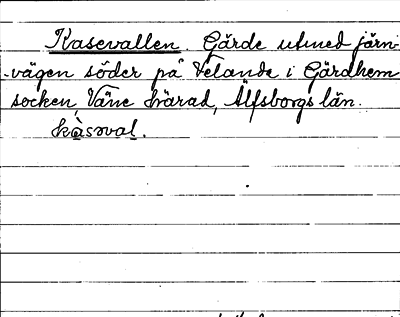 Kasevallen. Gärde utmed järn-
vägen söder på Velanda i Gärdhem
socken, Väne härad, Älfsborgs län.
kàsəval.